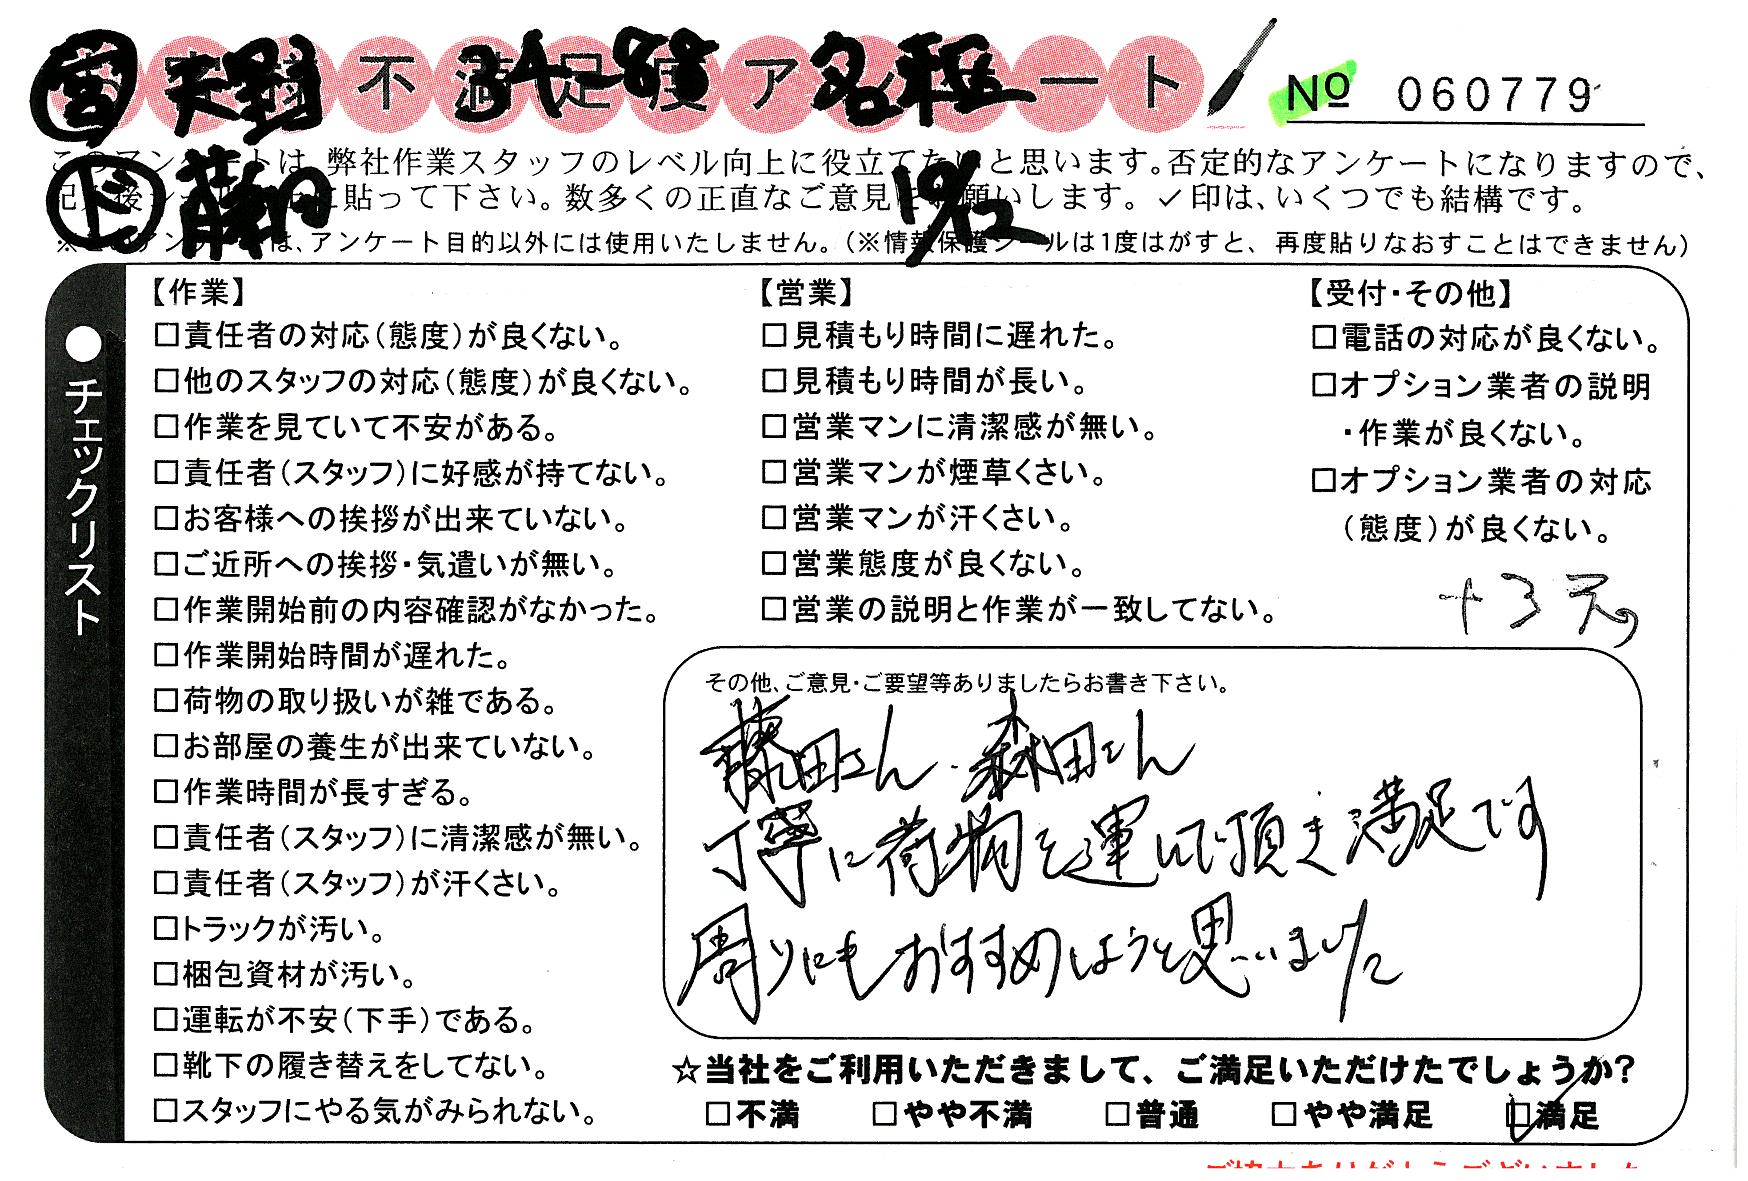 営 天野 34-88 名極
お客様不満足度アンケート No 060779
このアンケートは、弊社作業スタッフのレベル向上に役立てたいと思います。否定的なアンケートになりますので、
記入後シールを上に貼って下さい。数多くの正直なご意見をお願いします。✓印は、いくつでも結構です。
ド 藤田 10/12
※このアンケートは、アンケート目的以外には使用いたしません。(※情報保護シールは1度はがすと、再度貼りなおすことはできません)
●チェックリスト
【作業】
□責任者の対応(態度)が良くない。
□他のスタッフの対応(態度)が良くない。
□作業を見ていて不安がある。
□責任者(スタッフ)に好感が持てない。
□お客様への挨拶が出来ていない。
□ご近所への挨拶・気遣いが無い。
□作業開始前の内容確認がなかった。
□作業開始時間が遅れた。
□荷物の取り扱いが雑である。
□お部屋の養生が出来ていない。
□作業時間が長すぎる。
□責任者(スタッフ)に清潔感が無い。
□責任者(スタッフ)が汗くさい。
□トラックが汚い。
□梱包資材が汚い。
□運転が不安(下手)である。
□靴下の履き替えをしてない。
□スタッフにやる気がみられない。
【営業】
□見積もり時間に遅れた。
□見積もり時間が長い。
□営業マンに清潔感が無い。
□営業マンが煙草くさい。
□営業マンが汗くさい。
□営業態度が良くない。
□営業の説明と作業が一致してない。
【受付・その他】
□電話の対応が良くない。
□オプション業者の説明
・作業が良くない。
□オプション業者の対応
(態度)が良くない。
その他、ご意見・ご要望等ありましたらお書き下さい。
藤田さん・森田さん
丁寧に荷物を運んで頂き満足です
周りにもおすすめしようと思いました
☆当社をご利用いただきまして、ご満足いただけたでしょうか?
□不満 □やや不満 □普通 □やや満足 ☑満足
ご協力ありがとうございました